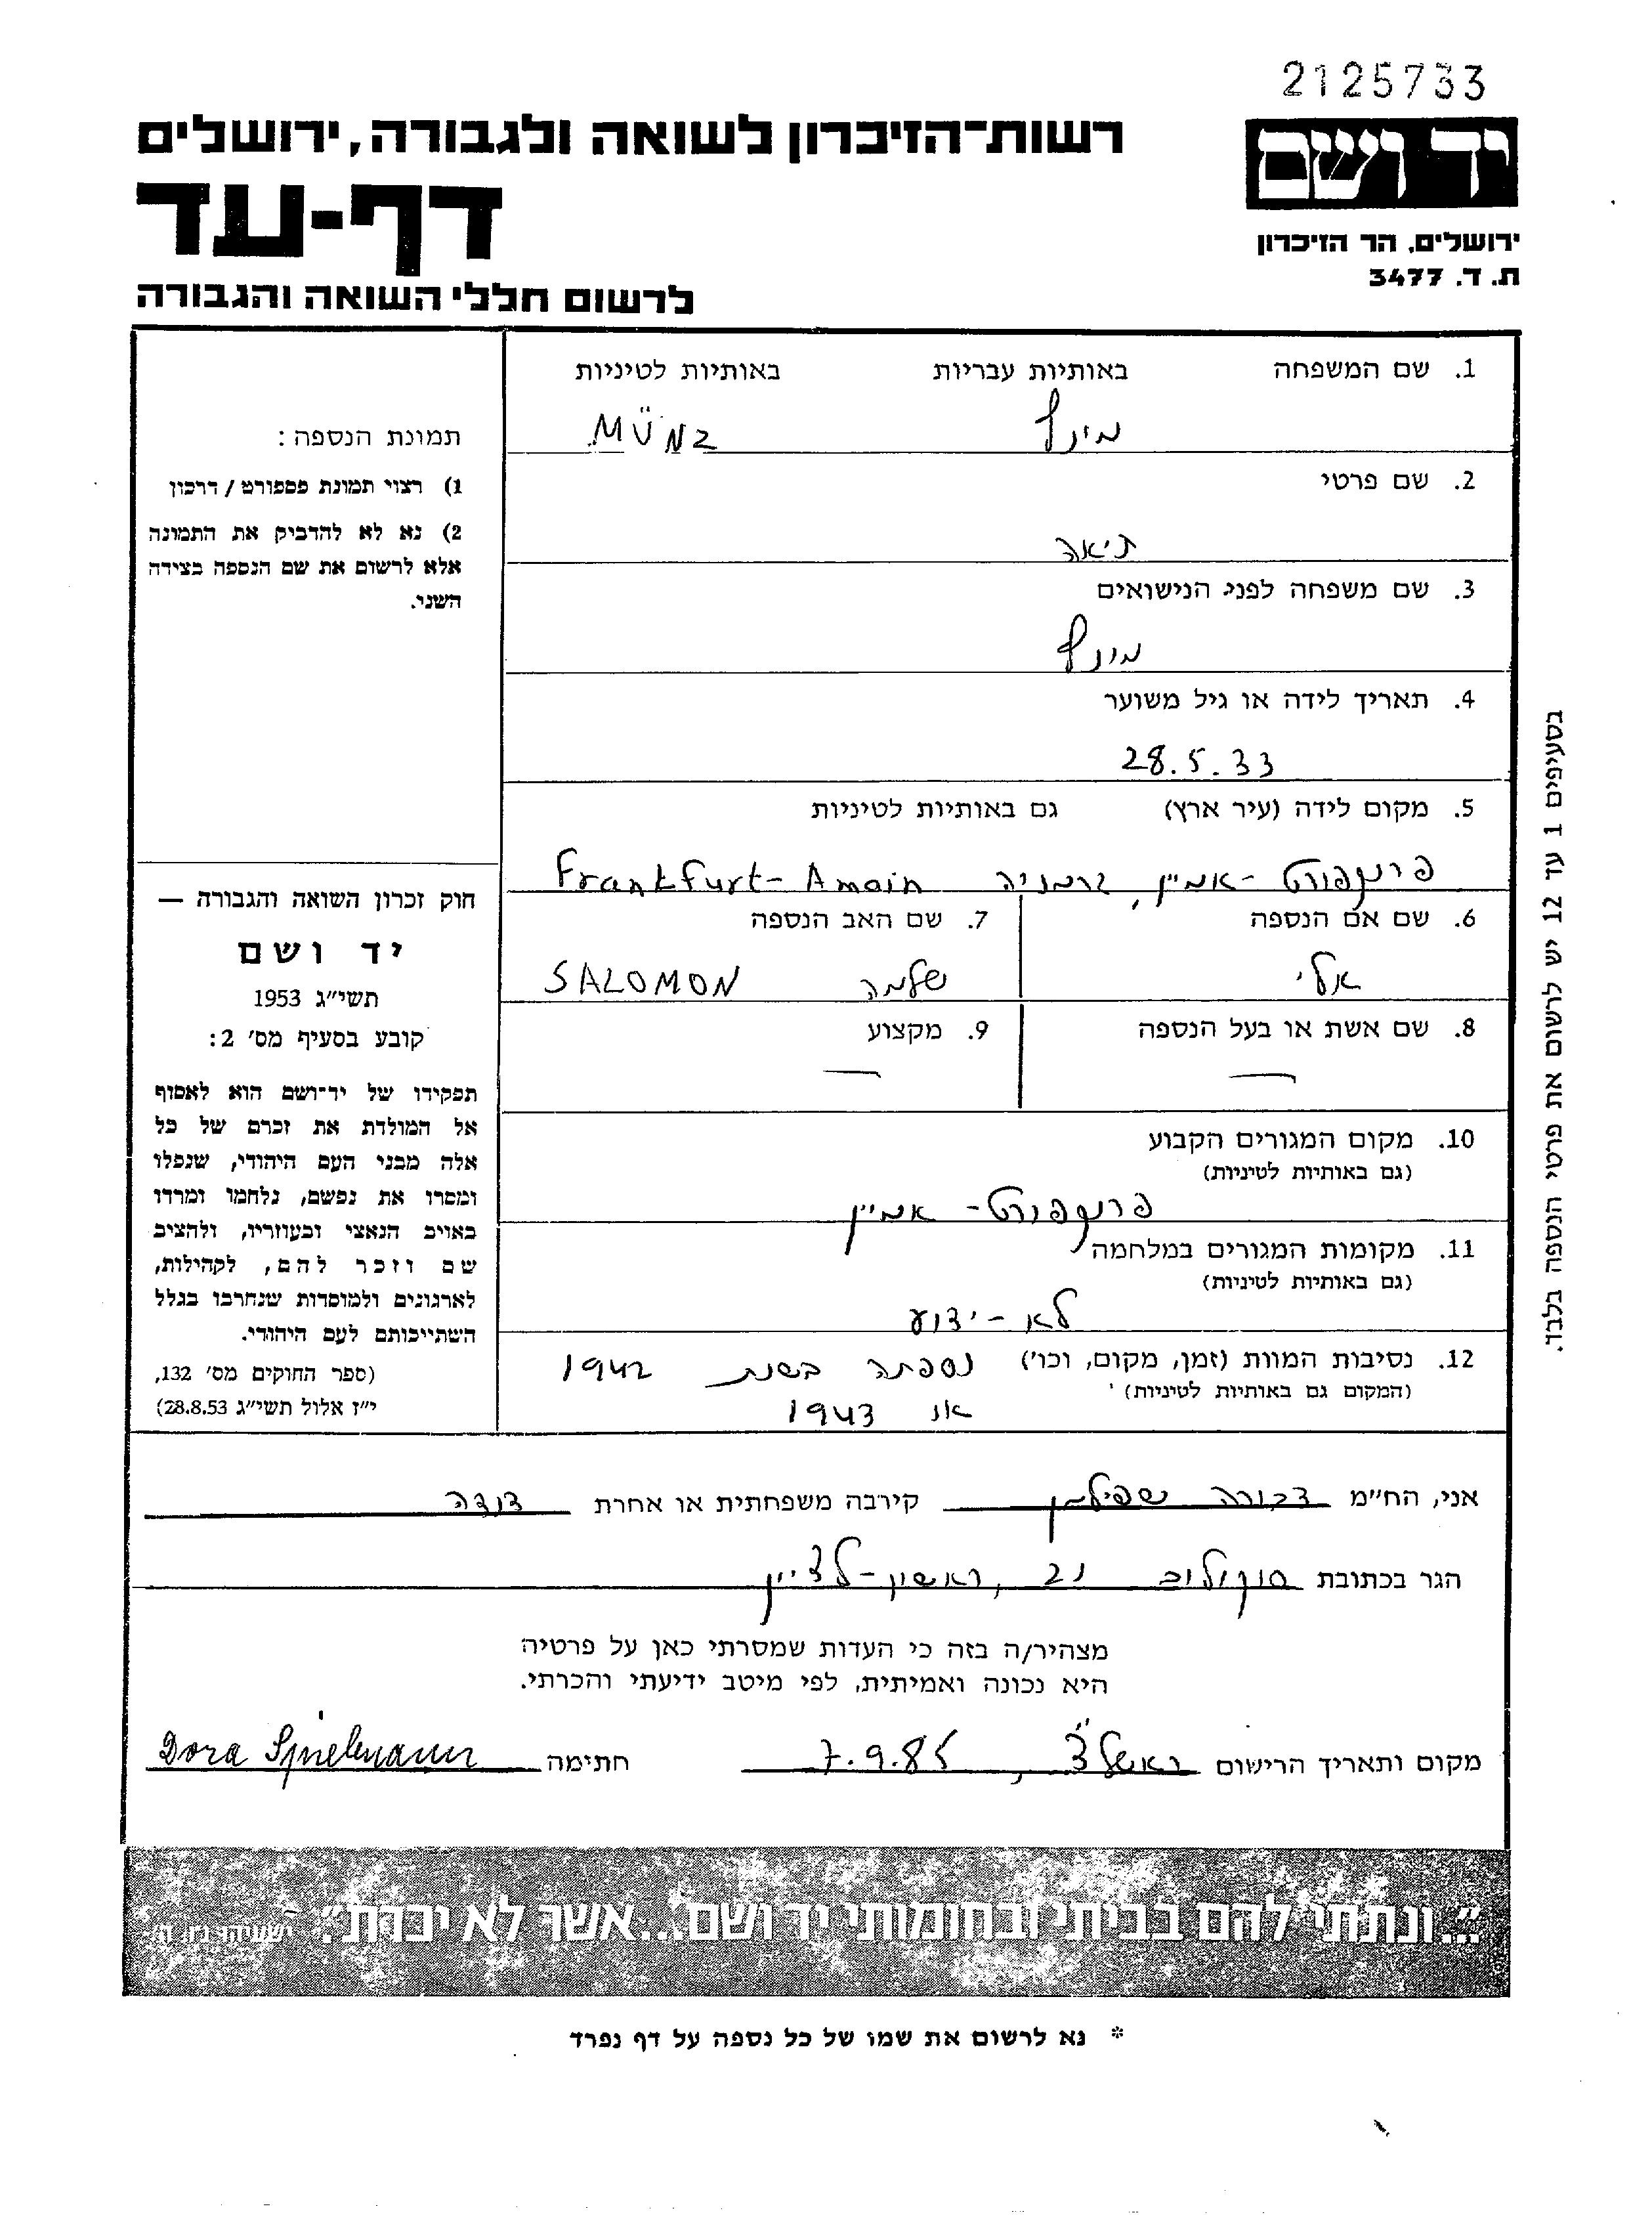 2125733
יד ושם
רשות־הזיכרון לשואה ולגבורה, ירושלים
דף-עד
ירושלים, הר הזיכרון
ת. ד. 3477
לרשום חללי השואה והגבורה
1. שם המשפחה באותיות עבריות באותיות לטיניות
מינץ MÜNZ
2. שם פרטי
תיאה
3. שם משפחה לפני הנישואים
מינץ
4. תאריך לידה או גיל משוער
28.5.33
5. מקום לידה (עיר ארץ) גם באותיות לטיניות
פרנקפורט-אמיין, גרמניה Frankfurt-Amain
6. שם אם הנספה 7. שם האב הנספה
אלי שלמה SALOMON
8. שם אשת או בעל הנספה 9. מקצוע
— —
10. מקום המגורים הקבוע
(גם באותיות לטיניות)
פרנקפורט-אמיין
11. מקומות המגורים במלחמה
(גם באותיות לטיניות)
לא-ידוע
12. נסיבות המוות (זמן, מקום, וכו') נספתה בשנת 1942
(המקום גם באותיות לטיניות)
או 1943
תמונת הנספה:
1) רצוי תמונת פספורט/דרכון
2) נא לא להדביק את התמונה
אלא לרשום את שם הנספה בצידה
השני.
חוק זכרון השואה והגבורה —
יד ושם
תשי״ג 1953
קובע בסעיף מס' 2:
תפקידו של יד־ושם הוא לאסוף
אל המולדת את זכרם של כל
אלה מבני העם היהודי, שנפלו
ומסרו את נפשם, נלחמו ומרדו
באויב הנאצי ובעוזריו, ולהציב
שם וזכר להם, לקהילות,
לארגונים ולמוסדות שנחרבו בגלל
השתייכותם לעם היהודי.
(ספר החוקים מס' 132,
י״ז אלול תשי״ג 28.8.53)
בסעיפים 1 עד 12 יש לרשום את פרטי הנספה בלבד.
אני, הח״מ דבורה שפילמן קירבה משפחתית או אחרת דודה
הגר בכתובת סוקולוב 21, ראשון-לציון
מצהיר/ה בזה כי העדות שמסרתי כאן על פרטיה
היא נכונה ואמיתית, לפי מיטב ידיעתי והכרתי.
מקום ותאריך הרישום ראשל״צ, 7.9.85 חתימה Dora Spielmann
״...ונתתי להם בביתי ובחומותי יד ושם...אשר לא יכרת״. ישעיהו נו, ה'
* נא לרשום את שמו של כל נספה על דף נפרד